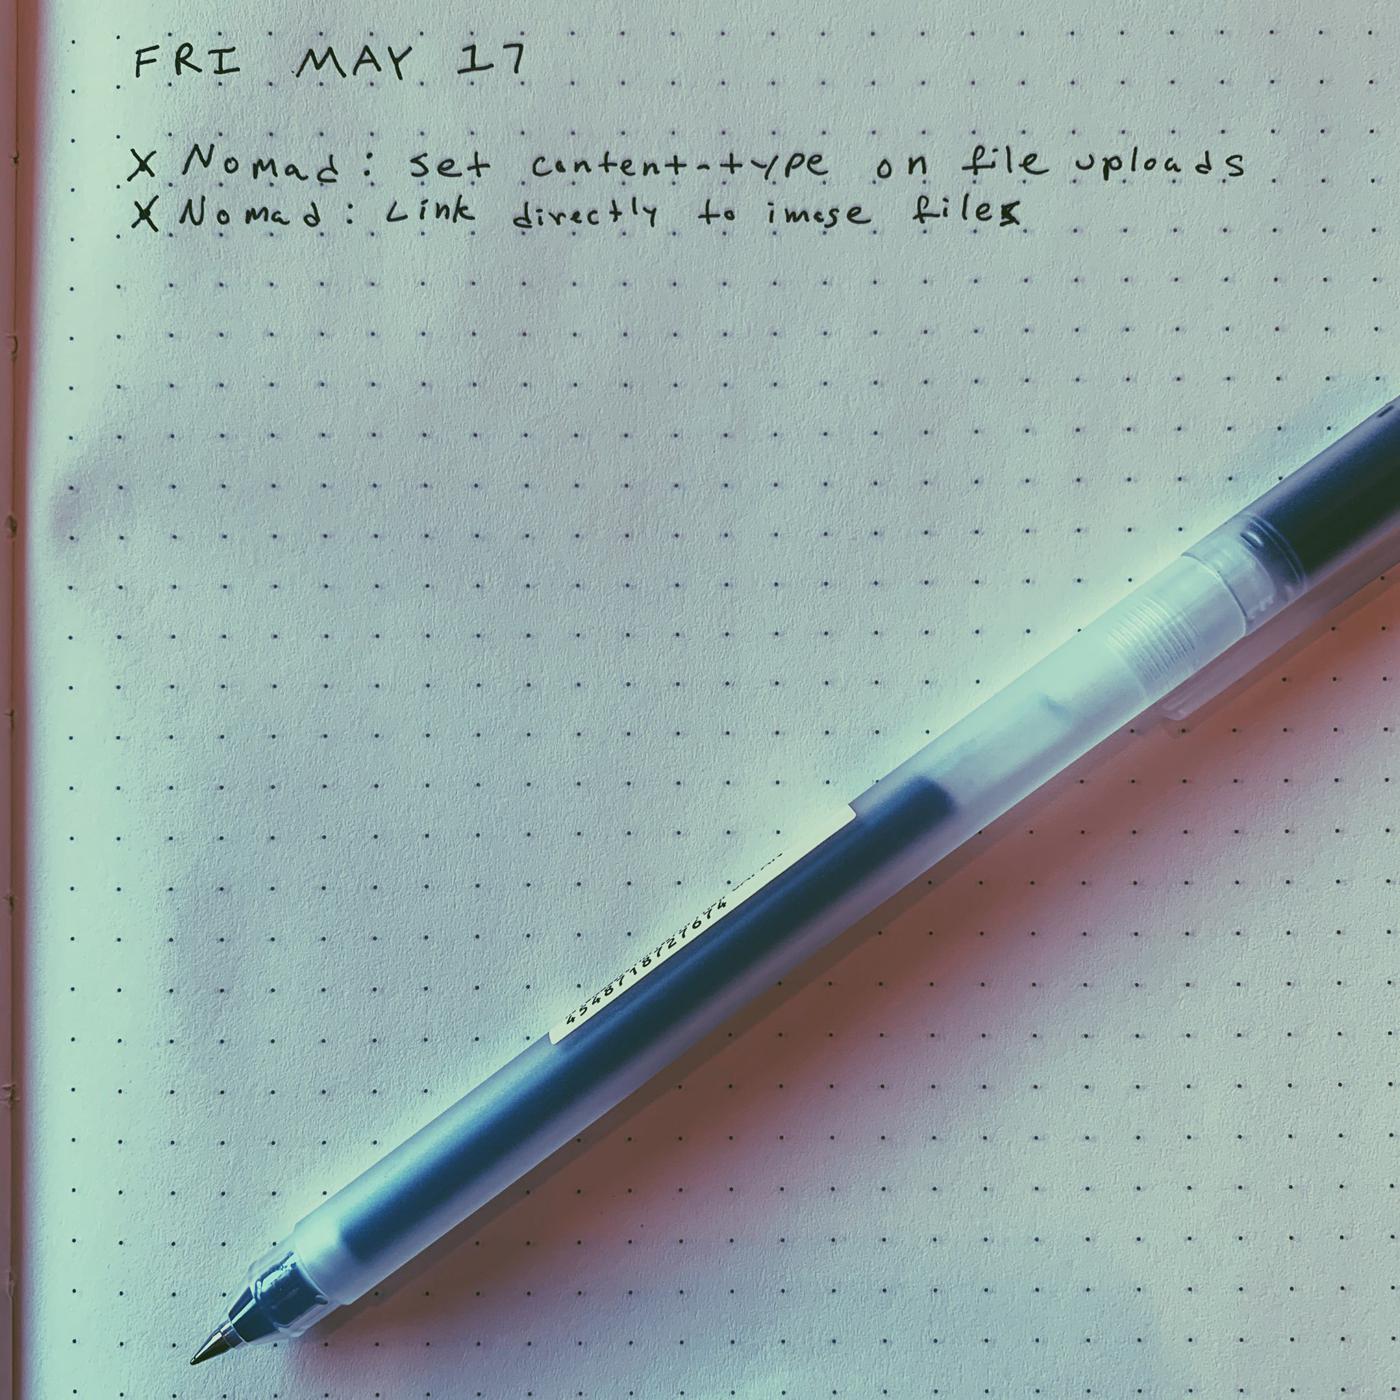 FRI MAY 17
X Nomad: set content-type on file uploads
X Nomad: Link directly to image files
4548718727674